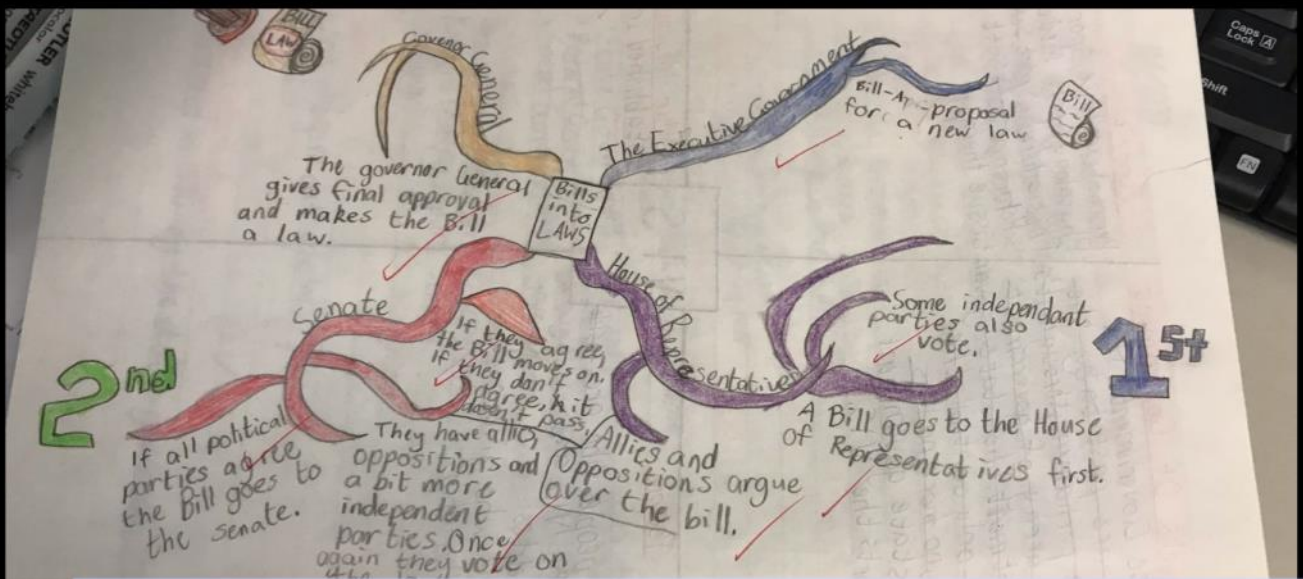 BILL
LAW
Govenor General
The Executive Government
Bill-A -proposal
for a new law
Bill
The governor General
gives final approval
and makes the Bill
a law.
Bills
into
LAWS
House of Representatives
Some independant
parties also
vote.
1st
A Bill goes to the House
of Representatives first.
Allies and
Oppositions argue
over the bill.
Senate
If they agree,
the Bill moves on.
If they don't
agree, it
doesn't pass.
2nd
If all political
parties agree
the Bill goes to
the senate.
They have allies,
oppositions and
a bit more
independent
parties. Once
again they vote on
Caps
Lock A
Shift
FN